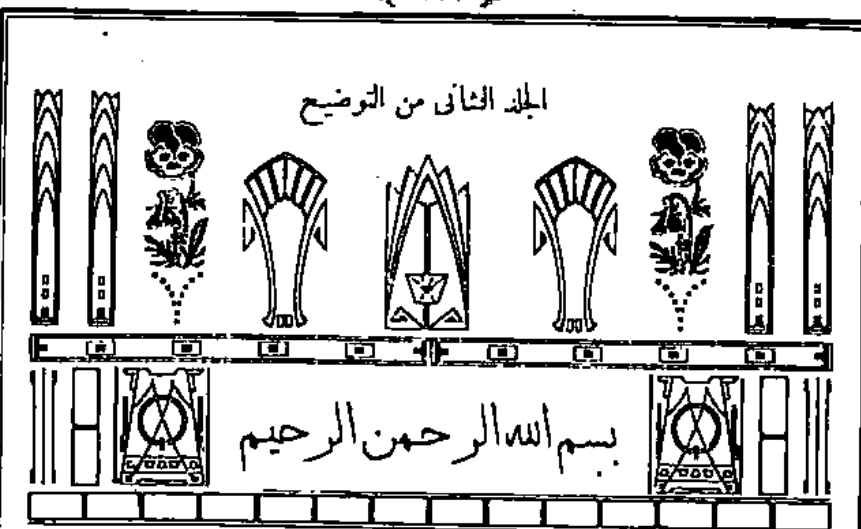 الجلد الثانى من التوضيح
بسم الله الرحمن الرحيم